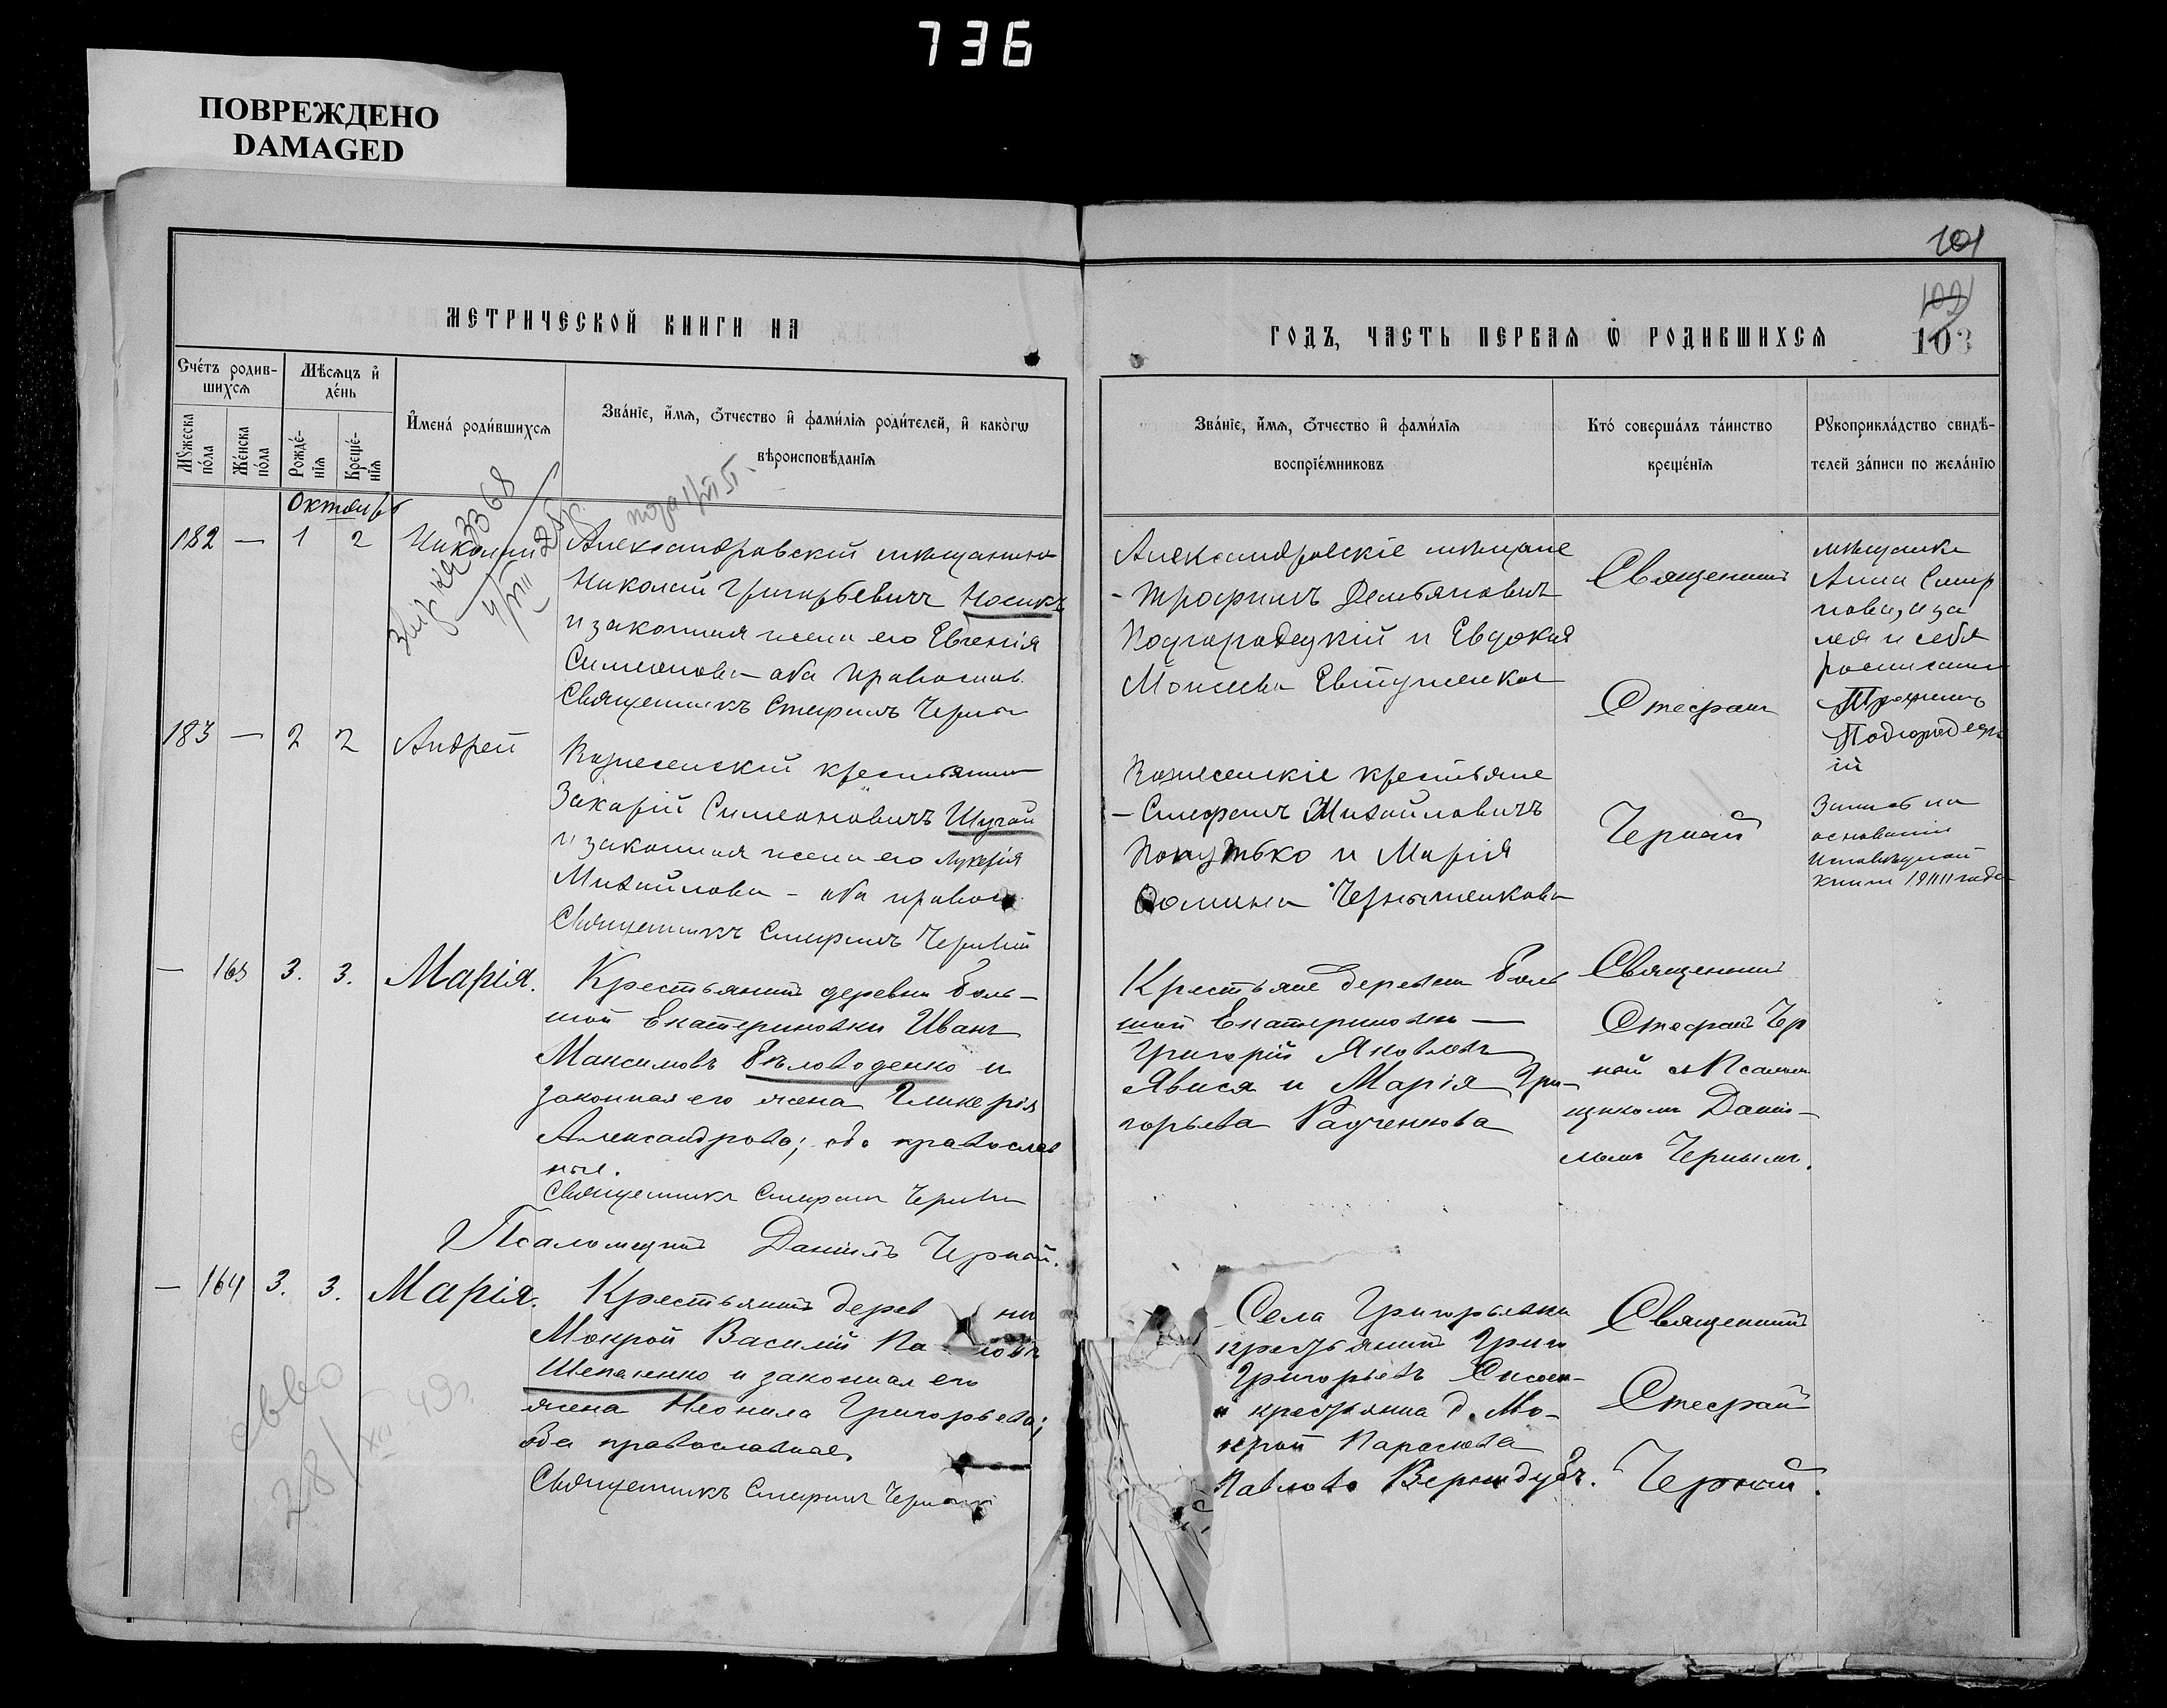 736
ПОВРЕЖДЕНО
DAMAGED
101
МЕТРИЧЕСКОЙ КНИГИ НА
ГОДЪ, ЧАСТЬ ПЕРВАЯ Ѡ РОДИВШИХСЯ
103
Счéтъ родив-
шихся
Мѣсяцъ и
дéнь
Мужеска
пóла
Жéнска
пóла
Рождé-
нія
Крещé-
нія
Именá роди́вшихся
Звáніе, и́мя, óтчество и фами́лія роди́телей, и какóгѡ
вѣроисповѣ́данія
Звáніе, и́мя, óтчество и фами́лія
воспріéмниковъ
Ктó совершáлъ тáинство
крещéнія
Рукоприклáдство свидѣ́-
телей зáписи по желáнію
Октябрь
182 — 1 2 Николай
Александровскій мѣщанинъ
Николай Григорьевичъ Носикъ
и законная жена его Евгенія
Симеонова — оба православ.
Священникъ Стефанъ Черный
Александровскіе мѣщане
- Трофимъ Демьяновичъ
Подгородецкій и Евдокія
Моисеева Евтушенкова
Священникъ
Стефанъ
Черный
мѣщанка
Анна Смир
нова, а за
нея и себя
росписался
Трофимъ
Подгородецк
ій
183 — 2 2 Андрей
Вознесенскій крестьянинъ
Захарій Симеоновичъ Шугай
и законная жена его Лукерія
Михайлова — оба правос
Священникъ Стефанъ Черный
Вознесенскіе крестьяне
- Стефанъ Михайловичъ
и Марія
Запись на
основаніи
Исповѣдной
книги
— 163 3. 3. Марія.
Крестьянинъ деревни Боль-
шой Екатериновки Иванъ
Максимовъ Бѣловоденко и
законная его жена Гликерія
Александрова; оба православ
ные.
Священникъ Стефанъ Черный
Псаломщикъ Даніилъ Черный.
Крестьяне деревни Боль
шой Екатериновки —
Григорій Яковлевъ
Явися и Марія Гри-
горьева Радченкова
Священникъ
Стефанъ Чер
ный съ Псалом
щикомъ Даніи-
ломъ Чернымъ.
— 164 3. 3. Марія.
Крестьянинъ дерев ни
Мокрой Василій Па ловъ
Шепаленко и законная его
жена Неонила Григорьева;
оба православные.
Священникъ Стефанъ Черный
Села Григорьевки
крестьянинъ Григо
Григорьевъ
и крестьянка д. Мо-
крой Параскева
Павлова Вернидубъ.
Священникъ
Стефанъ
Черный.
28/XII 49г.